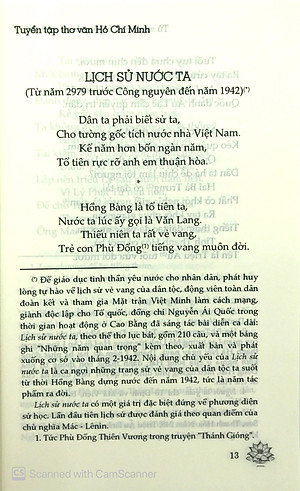 Tuyển tập thơ văn Hồ Chí Minh
LỊCH SỬ NƯỚC TA
(Từ năm 2979 trước Công nguyên đến năm 1942)(*)
Dân ta phải biết sử ta,
Cho tường gốc tích nước nhà Việt Nam.
Kể năm hơn bốn ngàn năm,
Tổ tiên rực rỡ anh em thuận hòa.
*
Hồng Bàng là tổ tiên ta,
Nước ta lúc ấy gọi là Văn Lang.
Thiếu niên ta rất vẻ vang,
Trẻ con Phù Đổng(1) tiếng vang muôn đời.
(*) Để giáo dục tinh thần yêu nước cho nhân dân, phát huy
lòng tự hào về lịch sử vẻ vang của dân tộc, động viên toàn dân
đoàn kết và tham gia Mặt trận Việt Minh làm cách mạng,
giành độc lập cho Tổ quốc, đồng chí Nguyễn Ái Quốc trong
thời gian hoạt động ở Cao Bằng đã sáng tác bài diễn ca dài:
Lịch sử nước ta, theo thể thơ lục bát, gồm 210 câu, và một bảng
ghi "Những năm quan trọng" kèm theo, xuất bản và phát
xuống cơ sở vào tháng 2-1942. Nội dung chủ yếu của Lịch sử
nước ta là ca ngợi những trang sử vẻ vang của dân tộc ta suốt
từ thời Hồng Bàng dựng nước đến năm 1942, tức là năm tác
phẩm ra đời.
Lịch sử nước ta có một giá trị đặc biệt đứng về phương diện
sử học. Lần đầu tiên lịch sử được đánh giá theo quan điểm của
chủ nghĩa Mác - Lênin.
1. Tức Phù Đổng Thiên Vương trong truyện "Thánh Gióng".
13
CS Scanned with CamScanner